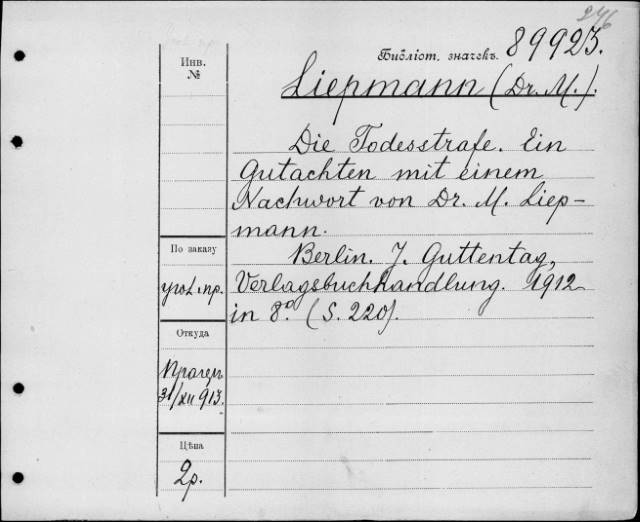 246
Библіот. значекъ. 89923.
Инв.
№
Liepmann (Dr. M.).
Die Todesstrafe. Ein
Gutachten mit einem
Nachwort von Dr. M. Liep-
mann.
Berlin. J. Guttentag,
Verlagsbuchhandlung. 1912
in 8º. (S. 220).
По заказу
угол. пр.
Откуда
Прагеръ
31/XII 913.
Цѣна
2р.